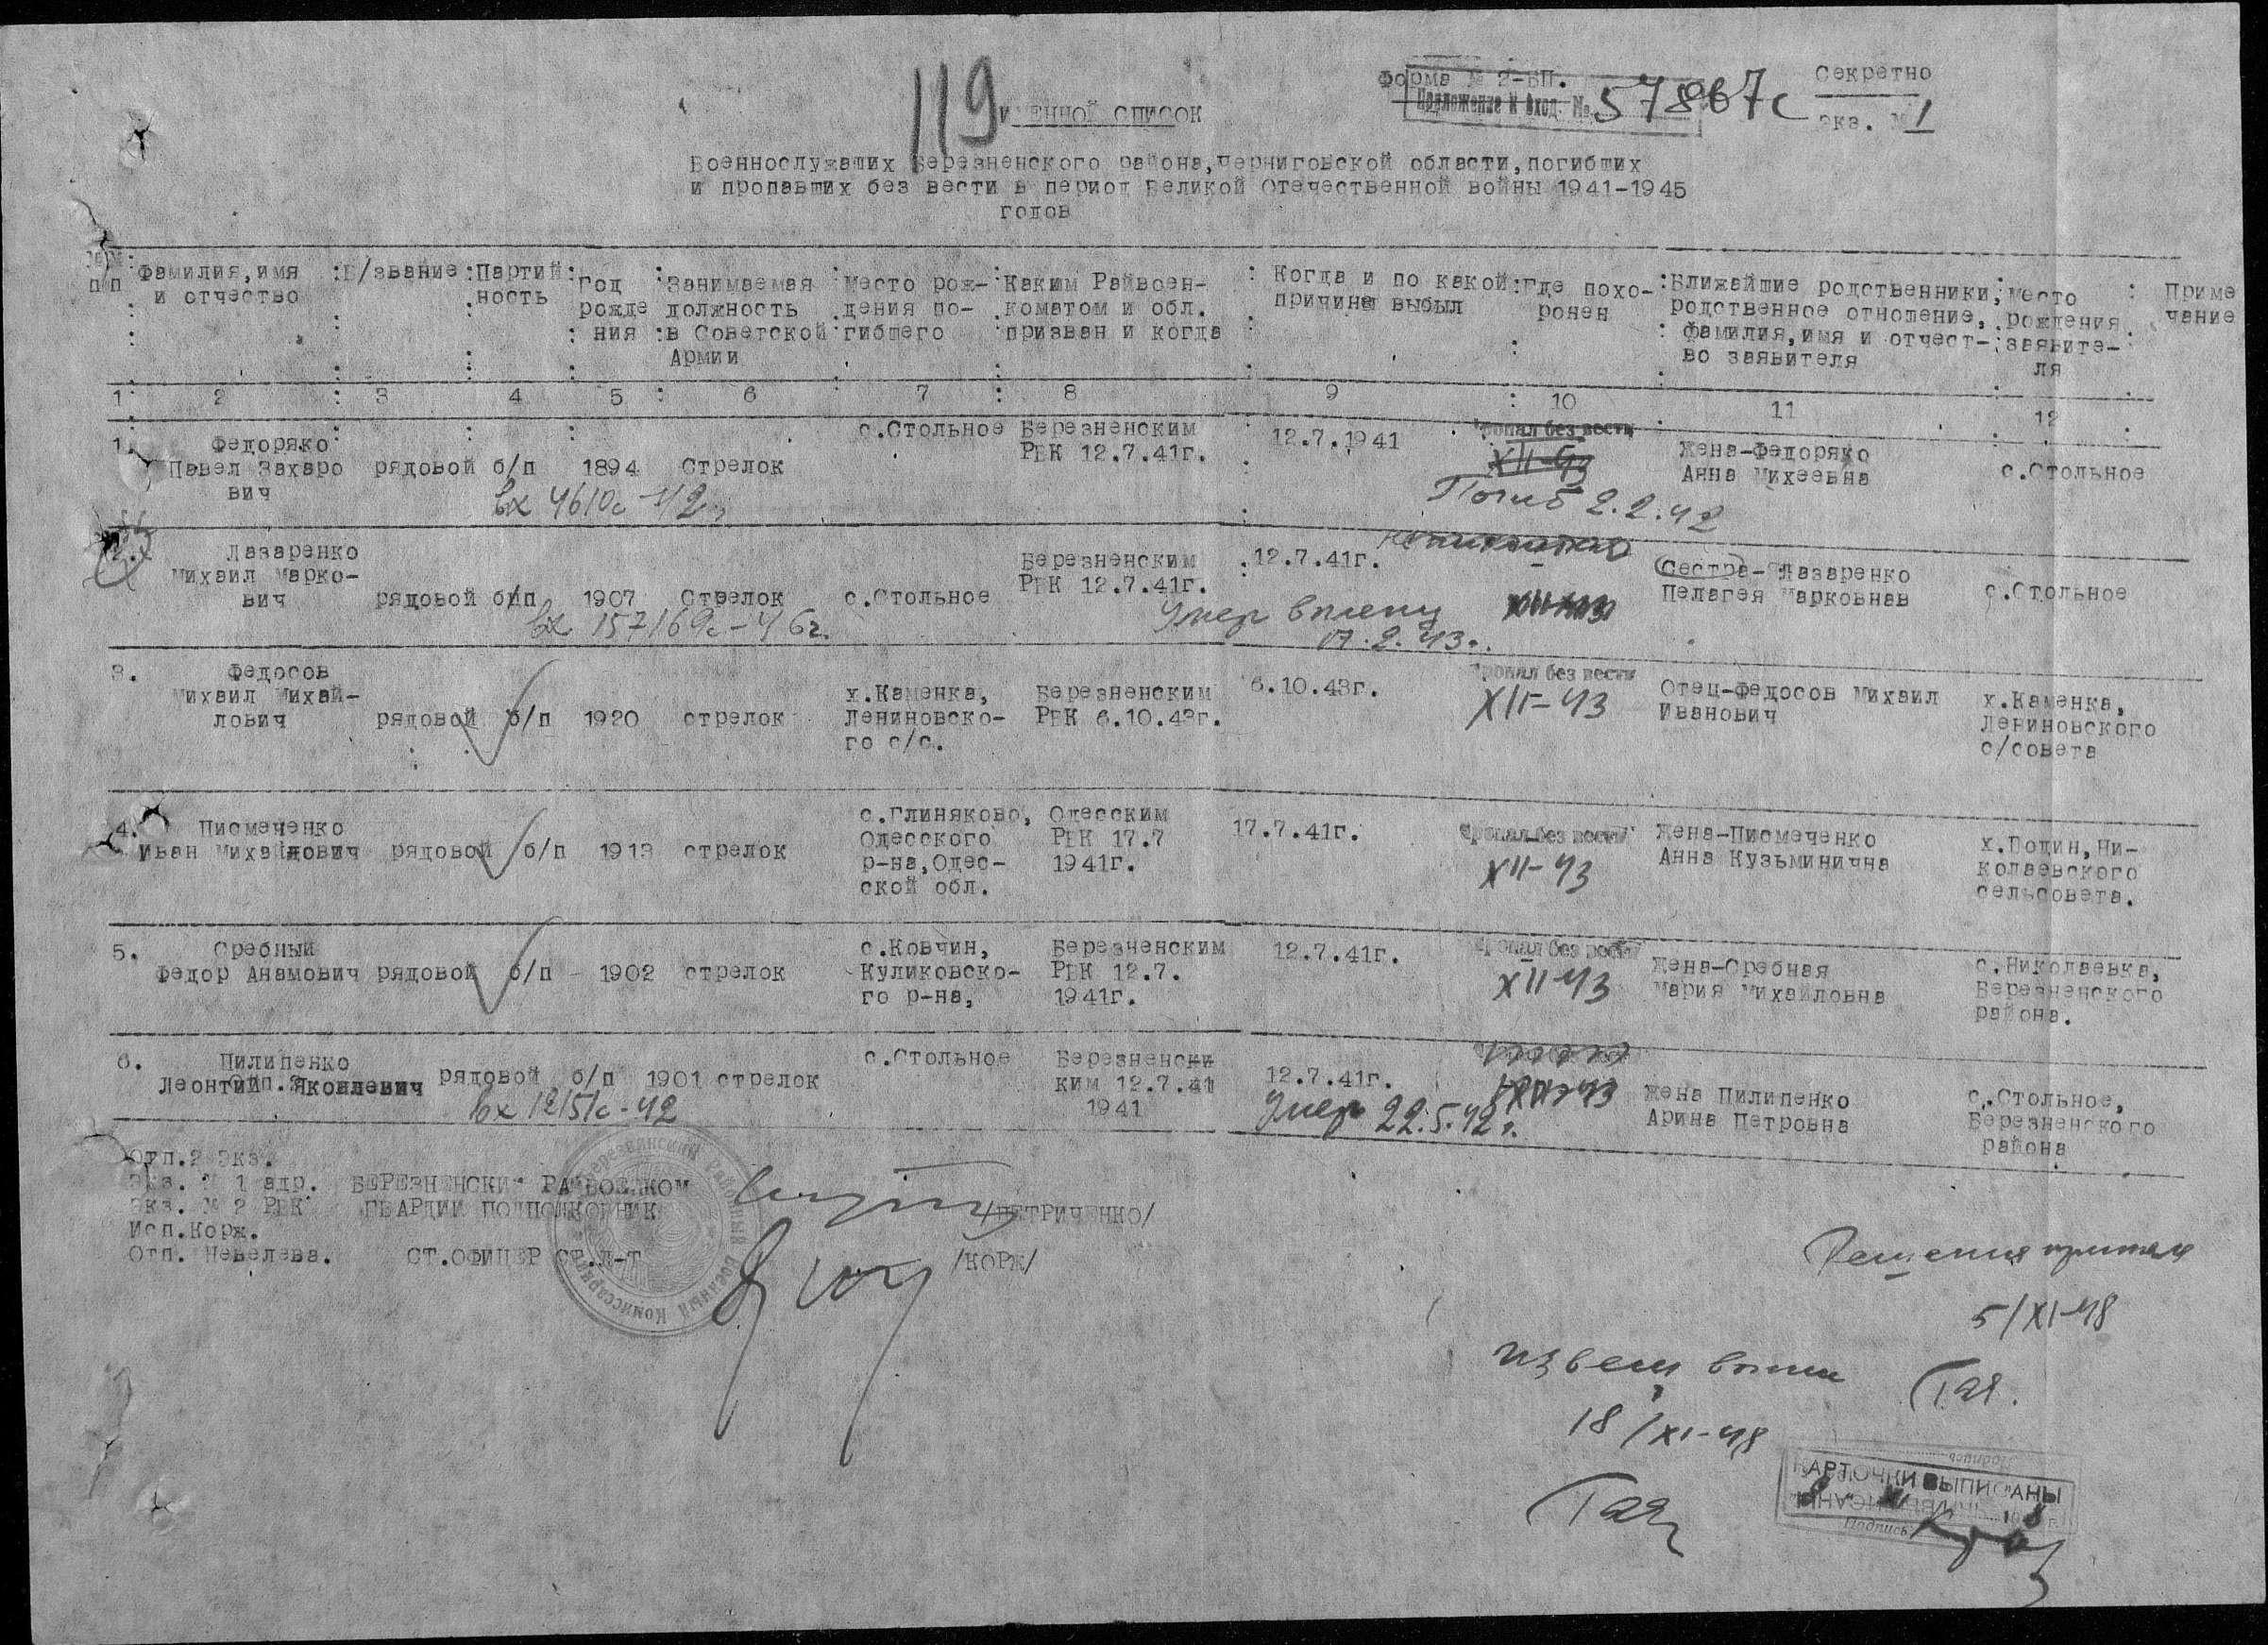 119
Форма № 2-БП.
Приложение к вход. № 57867с
Секретно
экз. № 1
ИМЕННОЙ СПИСОК
Военнослужащих Березненского района, Черниговской области, погибших
и пропавших без вести в период Великой Отечественной войны 1941-1945
годов
№№ п/п : Фамилия, имя и отчество : В/звание : Партийность : Год рождения : Занимаемая должность в Советской Армии : Место рождения погибшего : Каким Райвоенкоматом и обл. призван и когда : Когда и по какой причине выбыл : Где похоронен : Ближайшие родственники, родственное отношение, фамилия, имя и отчество заявителя : Место рождения заявителя : Примечание
1 : 2 : 3 4 5 : 6 7 : 8 9 : 10 11 12
1. Федоряко Павел Захарович рядовой б/п 1894 Стрелок с.Стольное Березненским РВК 12.7.41г. 12.7.1941 Пропал без вести XII-43 Жена-Федоряко Анна Михеевна с.Стольное
вх 4610с-42г.
Погиб 2.2.42
2. Лазаренко Михаил Маркович рядовой б/п 1907 Стрелок с.Стольное Березненским РВК 12.7.41г. 12.7.41г. XII-43 Сестра-Лазаренко Пелагея Марковнав с.Стольное
вх 157169с-46г.
Умер в плену
17.2.43г.
3. Федосов Михаил Михайлович рядовой б/п 1920 стрелок х.Каменка, Лениновского с/с. Березненским РВК 6.10.43г. 6.10.43г. Пропал без вести XII-43 Отец-Федосов Михаил Иванович х.Каменка, Лениновского с/совета
4. Писмеченко Иван Михайлович рядовой б/п 1913 стрелок с.Глиняково, Одесского р-на, Одесской обл. Одесским РВК 17.7 1941г. 17.7.41г. Пропал без вести XII-43 Жена-Писмеченко Анна Кузьминична х.Подин, Николаевского сельсовета.
5. Сребный Федор Анамович рядовой б/п 1902 стрелок с.Ковчин, Куликовского р-на, Березненским РВК 12.7. 1941г. 12.7.41г. Пропал без вести XII-43 Жена-Сребная Мария Михайловна с.Николаевка, Березненского района.
6. Пилипенко Леонтий Яковлевич рядовой б/п 1901 стрелок с.Стольное Березненски ким 12.7.41 1941 12.7.41г. XII-43 Жена Пилипенко Арина Петровна с.Стольное, Березненского района
вх 12151с-42
Умер 22.5.42г.
Отп.2 экз.
Экз. № 1 адр. БЕРЕЗНЕНСКИЙ РАЙВОЕНКОМ
Экз. № 2 РВК ГВАРДИИ ПОДПОЛКОВНИК /ПЕТРИЧЕНКО/
Исп.Корж.
Отп. Невелева. СТ.ОФИЦЕР СТ.Л-Т /КОРЖ/
Березнянский Районный Военный Комиссариат
Решения приняты
5/XI-48
Гая.
извещ выпис
18/XI-48
Гая
КАРТОЧКИ ВЫПИСАНЫ
Подпись